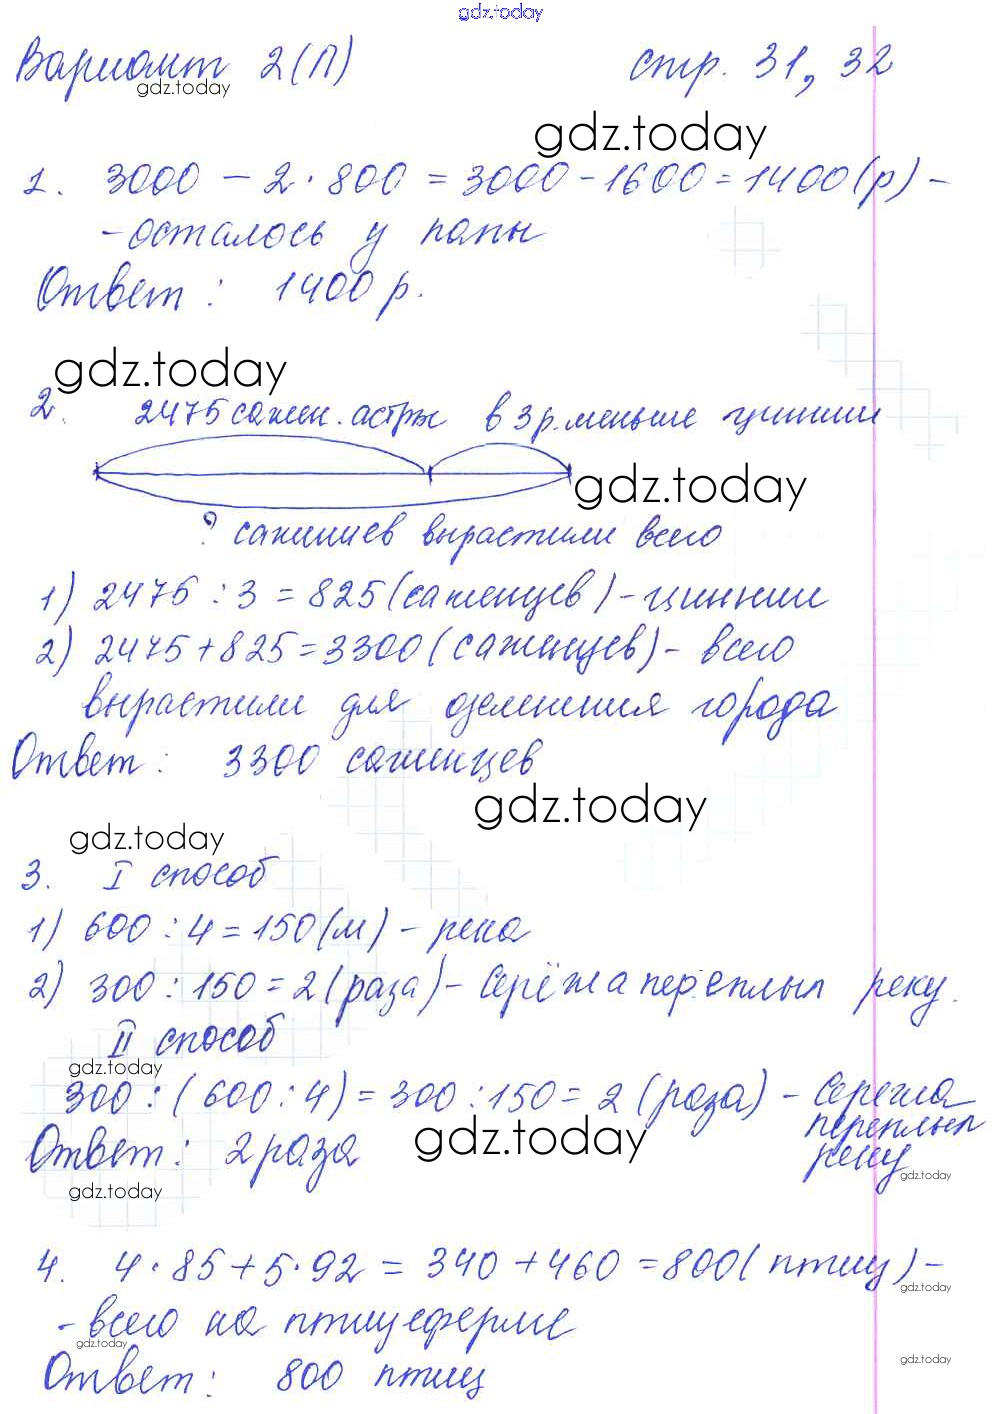 gdz.today
Вариант 2(П) стр. 31, 32
gdz.today
gdz.today
1. 3000 - 2·800 = 3000 - 1600 = 1400(р) -
- осталось у папы
Ответ: 1400 р.
gdz.today
2. 2475 сажен. астры в 3 р. меньше циннии
gdz.today
? саженцев вырастили всего
1) 2475 : 3 = 825 (саженцев) - циннии
2) 2475 + 825 = 3300 (саженцев) - всего
вырастили для озеленения города
Ответ: 3300 саженцев
gdz.today
gdz.today
3. I способ
1) 600 : 4 = 150 (м) - река
2) 300 : 150 = 2 (раза) - Серёжа переплыл реку.
II способ
gdz.today
300 : (600 : 4) = 300 : 150 = 2 (раза) - Сережа
переплыл
Ответ: 2 раза gdz.today реку
gdz.today
gdz.today
4. 4·85 + 5·92 = 340 + 460 = 800 (птиц) -
gdz.today
- всего на птицеферме
gdz.today
Ответ: 800 птиц
gdz.today